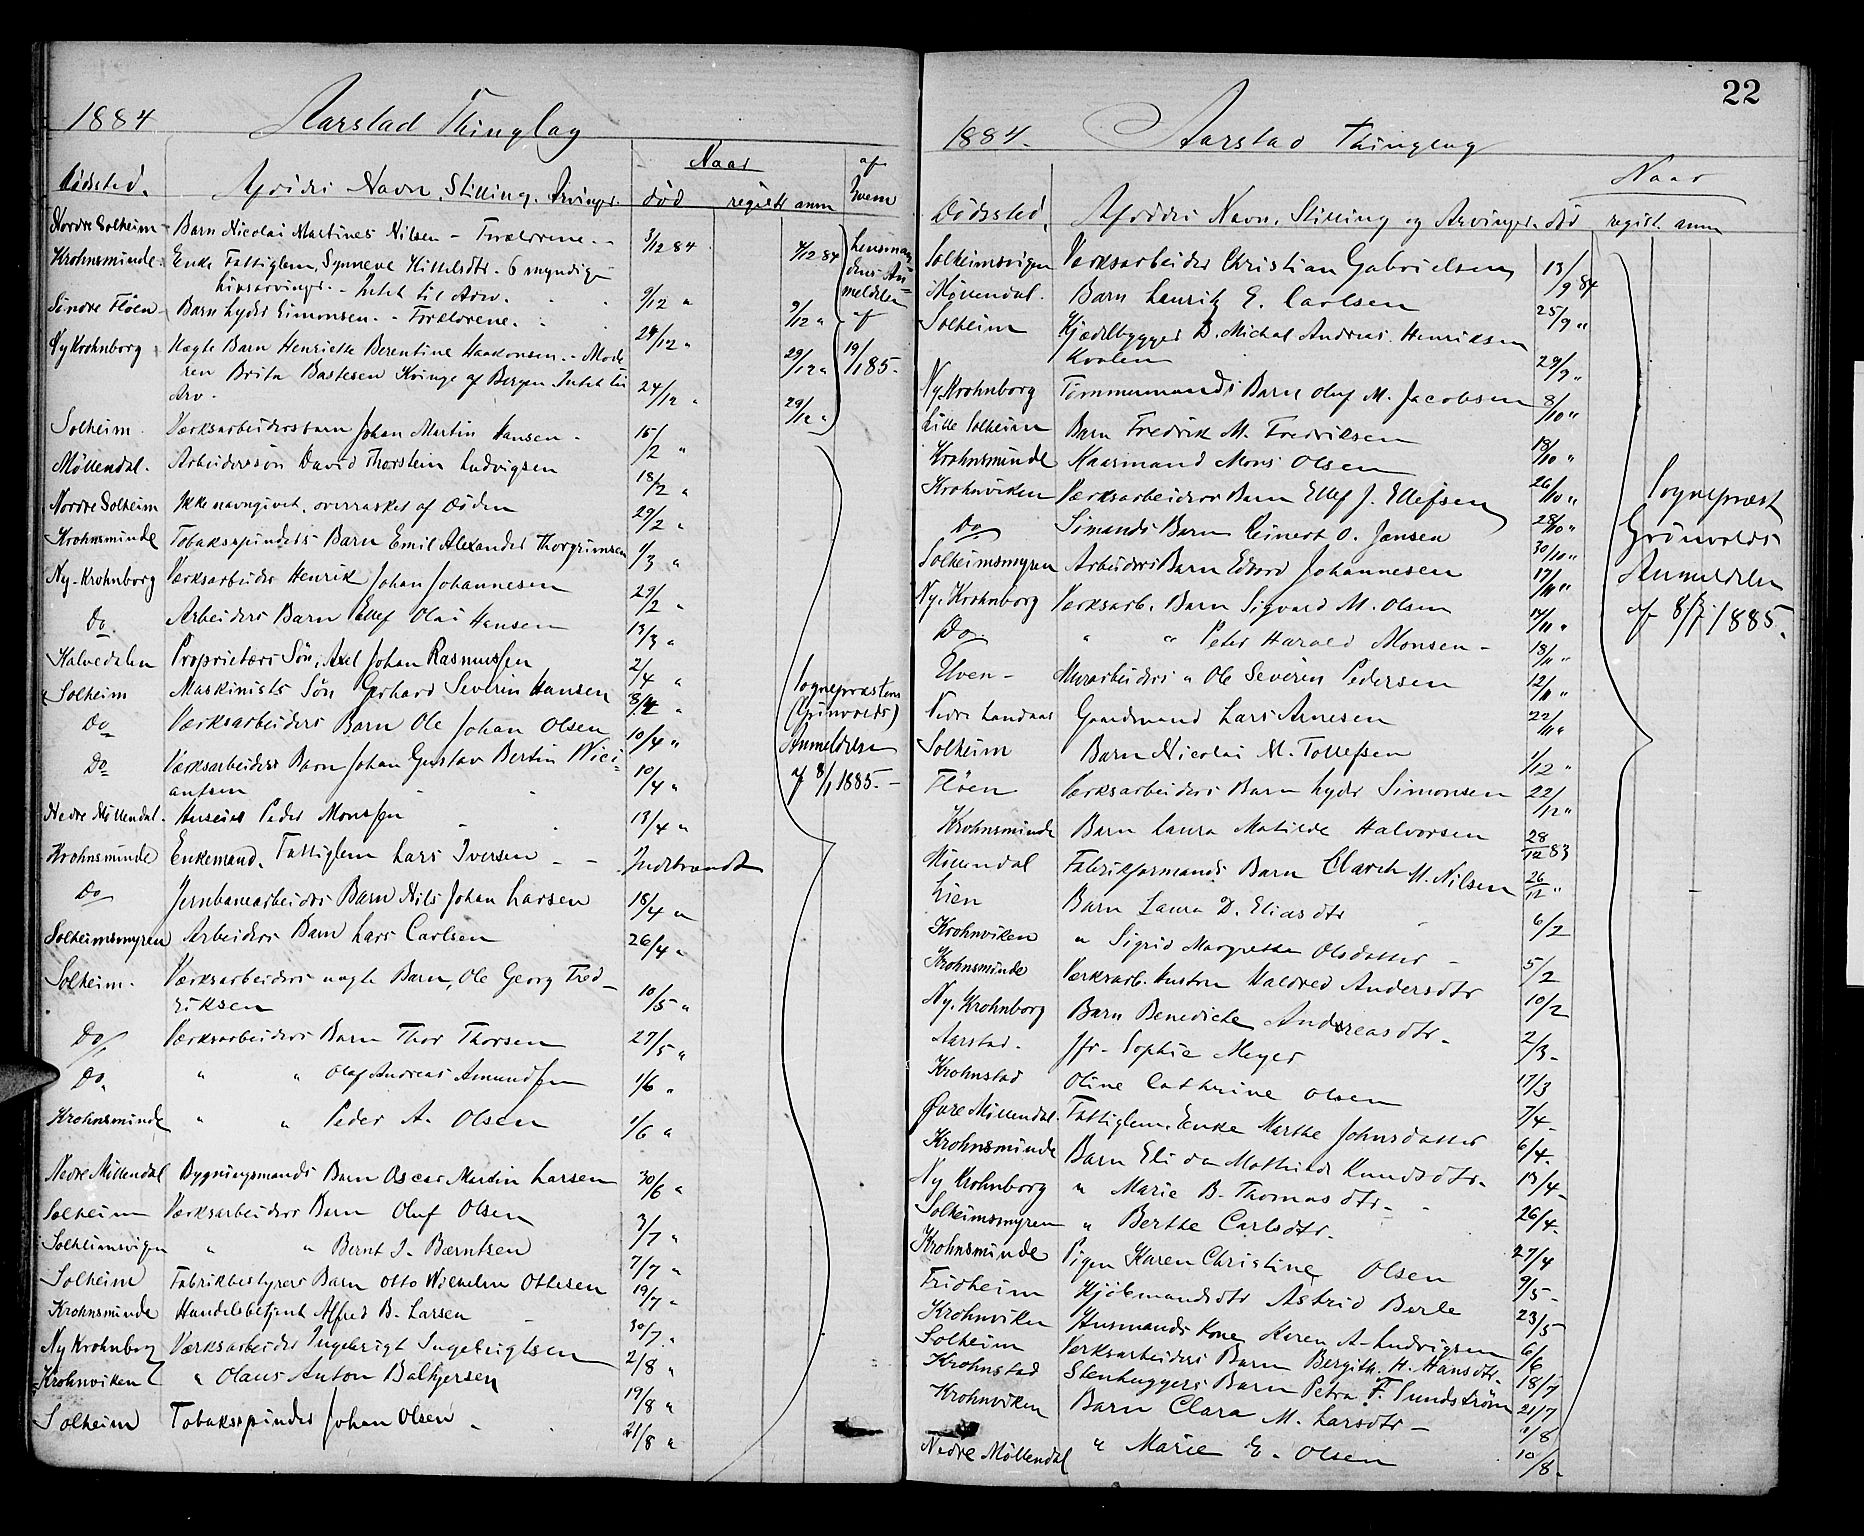 1884 Aarstad Thinglag
Naar af
Dödsted. Afdödes Navn, Stilling, Arvinger. död registr. anm Hvem
Nordre Solheim Barn Nicolai Martines Nilsen - Forældrene. - 3/12 84 4/12 84 Lensman-
Krohnsminde. Enke Fattiglem, Synneve Kittelsdtr. 6 myndige dens An-
Livsarvinger. - Intet til Arv. 9/12 " 9/12 " meldelse
Söndre Flöen Barn Lyder Simonsen. - Forældrene. 24/12 " af
Ny Krohnborg Uægte Barn Henriette Berentine Haakonsen. - Mode- 29/12 " 19/1 85.
ren Brita Bastesen Kvinge af Bergen Intet til
Arv. 24/12 " 29/12 "
Solheim. Værksarbeidersbarn Johan Martin Hansen. 15/2 "
Möllendal. Arbeiderssön David Thorstein Ludvigsen 18/2 "
Nordre Solheim Ikke navngivet, overrasket af Döden 29/2 "
Krohnsminde Tobaksspinders Barn Emil Alexander Thorgrimsen 1/3 "
Ny-Krohnborg Værksarbeider Henrik Johan Johannesen 29/2 "
Do. Arbeiders Barn Ellef Olai Hansen 13/3 "
Halvedalen Proprietærs Sön, Axel Johan Rasmussen 2/4 "
Solheim Maskinists Sön Gerhard Severin Hansen 8/4 " Sognepræstens
Do Værksarbeiders Barn Ole Johan Olsen 10/4 " (Grönvolds)
Do Værksarbeiders Barn Johan Gustav Bertin Nici- 10/4 " Anmeldelse
antsen af 8/1 1885. -
Nedre Möllendal. Huseier Peder Monssen 13/4 "
Krohnsminde Enkemand, Fattiglem Lars Iversen - - Indebrændt
Do Jernbanearbeiders Barn Nils Johan Larsen 18/4 "
Solheimsmyren Arbeiders Barn Lars Carlsen 26/4 "
Solheim. Værksarbeiders uægte Barn, Ole Georg Fred-
riksen 10/5 "
Do Værksarbeiders Barn Thor Thorsen 27/5 "
Do. " " Olaf Andreas Amundsen 1/6 "
Krohnsminde " " Peder A. Olsen 1/6 "
Nedre Möllendal Bygningsmands Barn Oscar Martin Larsen 30/6 "
Solheim Værksarbeiders Barn Oluf Olsen 3/7 "
Solheimsvigen " " Bernt J. Bærntsen 7/7 "
Solheim Fabrikbestyrers Barn Otto Wilhelm Ottesen 19/7 "
Krohnsminde Handelsbetjent Alfred B. Larsen 30/7 "
Ny Krohnborg Værksarbeider Ingebrigt Ingebrigtsen 2/8 "
Krohnviken " Olaus Anton Balhjersen 19/8 "
Solheim Tobaksspinder Johan Olsen. 21/8 "
22
1884. Aarstad Thinglag
Naar
Dödssted, Afdödes Navn, Stilling og Arvinger. död registr. anm
Solheimsvigen Værksarbeider Christian Gabrielsen 13/9 84
Möllendal. Barn Lauritz E. Carlsen 25/9 "
Solheim Kjedelbygger D. Michal Andreas Henriksen
Kvalen 29/9 "
Ny Krohnborg Tömmermands Barn Oluf M. Jacobsen 8/10 "
Lille Solheim Barn Fredrik M. Fredriksen 18/10 "
Krohnsminde Kaarmand Mons Olsen 26/10 "
Krohnviken Værksarbeiders Barn Ellef J. Ellefsen 28/10 " Sognepræst
Do Sömands Barn Reinert O. Jansen 30/10 " Grönvolds
Solheimsmyren Arbeiders Barn Edvard Johannesen 17/11 " Anmeldelse
Ny. Krohnborg Værksarb. Barn Sigvard M. Olsen 14/11 " af 8/1 1885.
Do " " Peter Harald Monsen - 18/11 "
Elven - Murarbeiders " Ole Severin Pedersen 12/11 "
Nedre Landaas Gaardmand Lars Arnesen 22/11 "
Solheim Barn Nicolai M. Tollefsen 1/12 "
Flöen Værksarbeiders Barn Lyder Simonsen 22/12 "
Krohnsminde Barn Laura Matilde Halvorsen 28/12 83
Möllendal Fabrikformands Barn Clareh M. Nilsen 26/12 "
Lien Barn Laura D. Eliasdtr 6/2
Krohnviken " Sigrid Margrethe Olsdatter - 5/2
Krohnsminde Værksarb. Hustru Valdred Andersdtr 10/2
Ny. Krohnborg Barn Benedicte Andreasdtr. 2/3.
Aarstad. Jfr. Sophie Meyer 17/3
Krohnstad Oline Cathrine Olsen 7/4.
Övre Möllendal. Fattiglem. Enke Marthe Johnsdatter 6/4.
Krohnsminde Barn Elida Mathilde Knudsdtr. 13/4.
Ny Krohnborg " Marie B. Thomasdtr. 26/4.
Solheimsmyren " Berthe Carlsdtr.
Krohnsminde Pigen Karen Christine Olsen 27/4
Fridheim Kjöbmandsdtr Astrid Berle 9/5.
Krohnviken Husmands Kone Karen A. Ludvigsen 23/5
Solheim Værksarbeiders Barn Bergith. H. Hansdtr. 6/6
Krohnstad Stenhuggers Barn Petra F. Sundström 18/7
Krohnviken Barn Clara M. Larsdtr - 21/7
1/8
Nedre Möllendal " Marie E. Olsen 10/8.